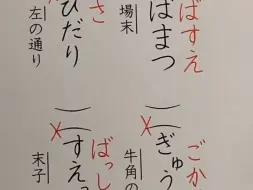 ばすえ
ばまつ
場末
さ
ひだり
左の通り
ごか
ぎゅう
牛角の
ばっし
すえっ
末子